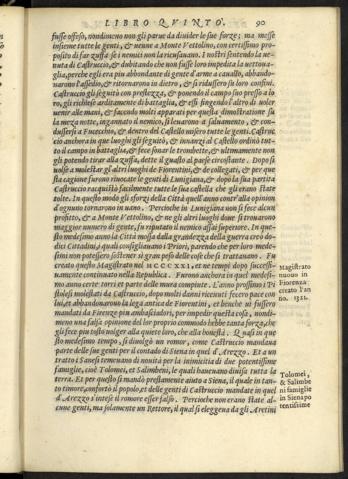 LIBRO QVINTO. 90
fusse offeso, nondimeno non gli parue da diuider le sue forze; ma messe
insieme tutte le genti, & uenne a Monte Vettolino, con certissimo pro=
posito di far zuffa se i nemici non la ricusauano. I nostri sentendo la ue=
nuta di Castruccio, & dubitando che non fusse loro impedita la uettoua=
glia, perche egli era piu abbondante di gente d'arme a cauallo, abbando=
narono l'assedio, & ritornarono in dietro, & si ridussero su loro confini.
Castruccio gli seguitò con prestezza, & ponendo il campo suo presso a lo
ro, gli richiese arditamente di battaglia, & essi fingendo l'altro dì uoler
uenir alle mani, & facendo molti apparati per questa dimostratione su
la meza notte, ingannato il nemico, si leuarono a saluamento, & con=
dusserși a Fucecchio, & dentro del Castello misero tutte le genti. Castruc
cio anchora in que luoghi gli seguitò, & innanzi al Castello ordinò tut=
to il campo in battaglia, & fece sonar le trombette, & ultimamente non
gli potendo tirar alla zuffa, dette il guasto al paese circonstante. Dopo si
uolse a molestar gl'altri luoghi de Fiorentini, & de collegati, & per que
sta cagione furono riuocate le genti di Lunigiana, & dopo la sua partita
Castruccio racquistò facilmente tutte le sua castella che gli erano state
tolte. In questo modo gli sforzi della Città quell'anno contr'all'opinion
d'ognuno tornarono in uano. Percioche in Lunigiana non si fece alcun
profitto, & a Monte Vettolino, & ne gli altri luoghi doue si trouarono
maggior numero di gente, fu riputato il nemico assai superiore. In que=
sto medesimo anno la Città mossa dalla grandezza della guerra creò do=
dici Cittadini, i quali consigliauano i Priori, parendo che per loro mede=
simi non potessero sostener sì gran peso delle cose che si trattauano. Fu
creato questo Magistrato nel MCCCXXI, et ne tempi dopo successi=
uamente continuato nella Republica. Furono anchora in quel medesi=
mo anno certe torri et parte delle mura compiute. L'anno prossimo i Pi
stolesi molestati da Castruccio, dopo molti danni riceuuti fecero pace con
lui, et abbandonarono la lega antica de Fiorentini, et benche ui fussero
mandati da Firenze piu ambasciadori, per impedir questa cosa, nondi=
meno una falsa opinione del lor proprio commodo hebbe tanta forza, che
gli fece piu tosto uolger alla quiete loro, che alla honestà. Et quasi in que
sto medesimo tempo, si diuolgò un romor, come Castruccio mandaua
parte delle sue genti per il contado di Siena in quel d'Arezzo. Et a un
tratto i Sanesi temeuano di nouità per la inimicitia di due potentissime
famiglie, cioè Tolomei, et Salimbeni, le quali haueuano diuisa tutta la
terra. Et per questo si mandò prestamente aiuto a Siena, il quale in tan=
to timore, confortò il popolo, et delle genti di Castruccio mandate in quel
d'Arezzo s'intese il romore esser falso. Percioche non erano state al=
cune genti, ma solamente un Rettore, il qual si eleggeua da gli Aretini
Magistrato
nuouo in
Fiorenza
creato l'an
no. 1321.
Tolomei,
& Salimbe
ni famiglie
in Siena po
tentissime